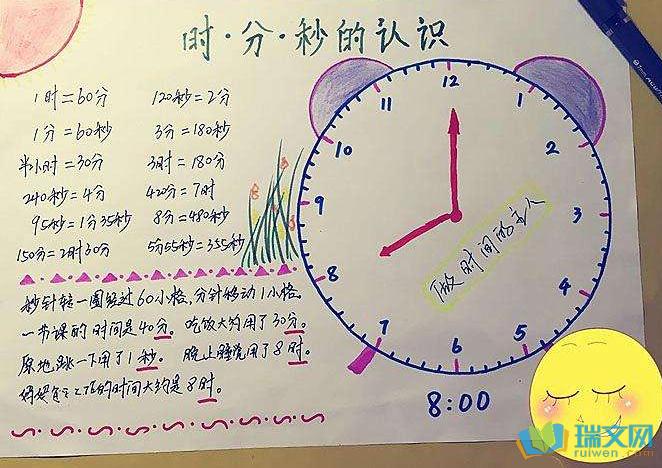 时·分·秒的认识
1时=60分
120秒=2分
1分=60秒
3分=180秒
半小时=30分
3时=180分
240秒=4分
420分=7时
95秒=1分35秒
8分=480秒
150分=2时30分
5分55秒=355秒
秒针转一圈经过60小格,分针移动1小格。
一节课的时间是40分。吃饭大约用了30分。
原地跳一下用了1秒。 晚上睡觉用了8时。
妈妈每天工作的时间大约是8时。
12
1
2
3
4
5
6
7
8
9
10
11
做时间的主人
8:00
瑞文网
ruiwen.com